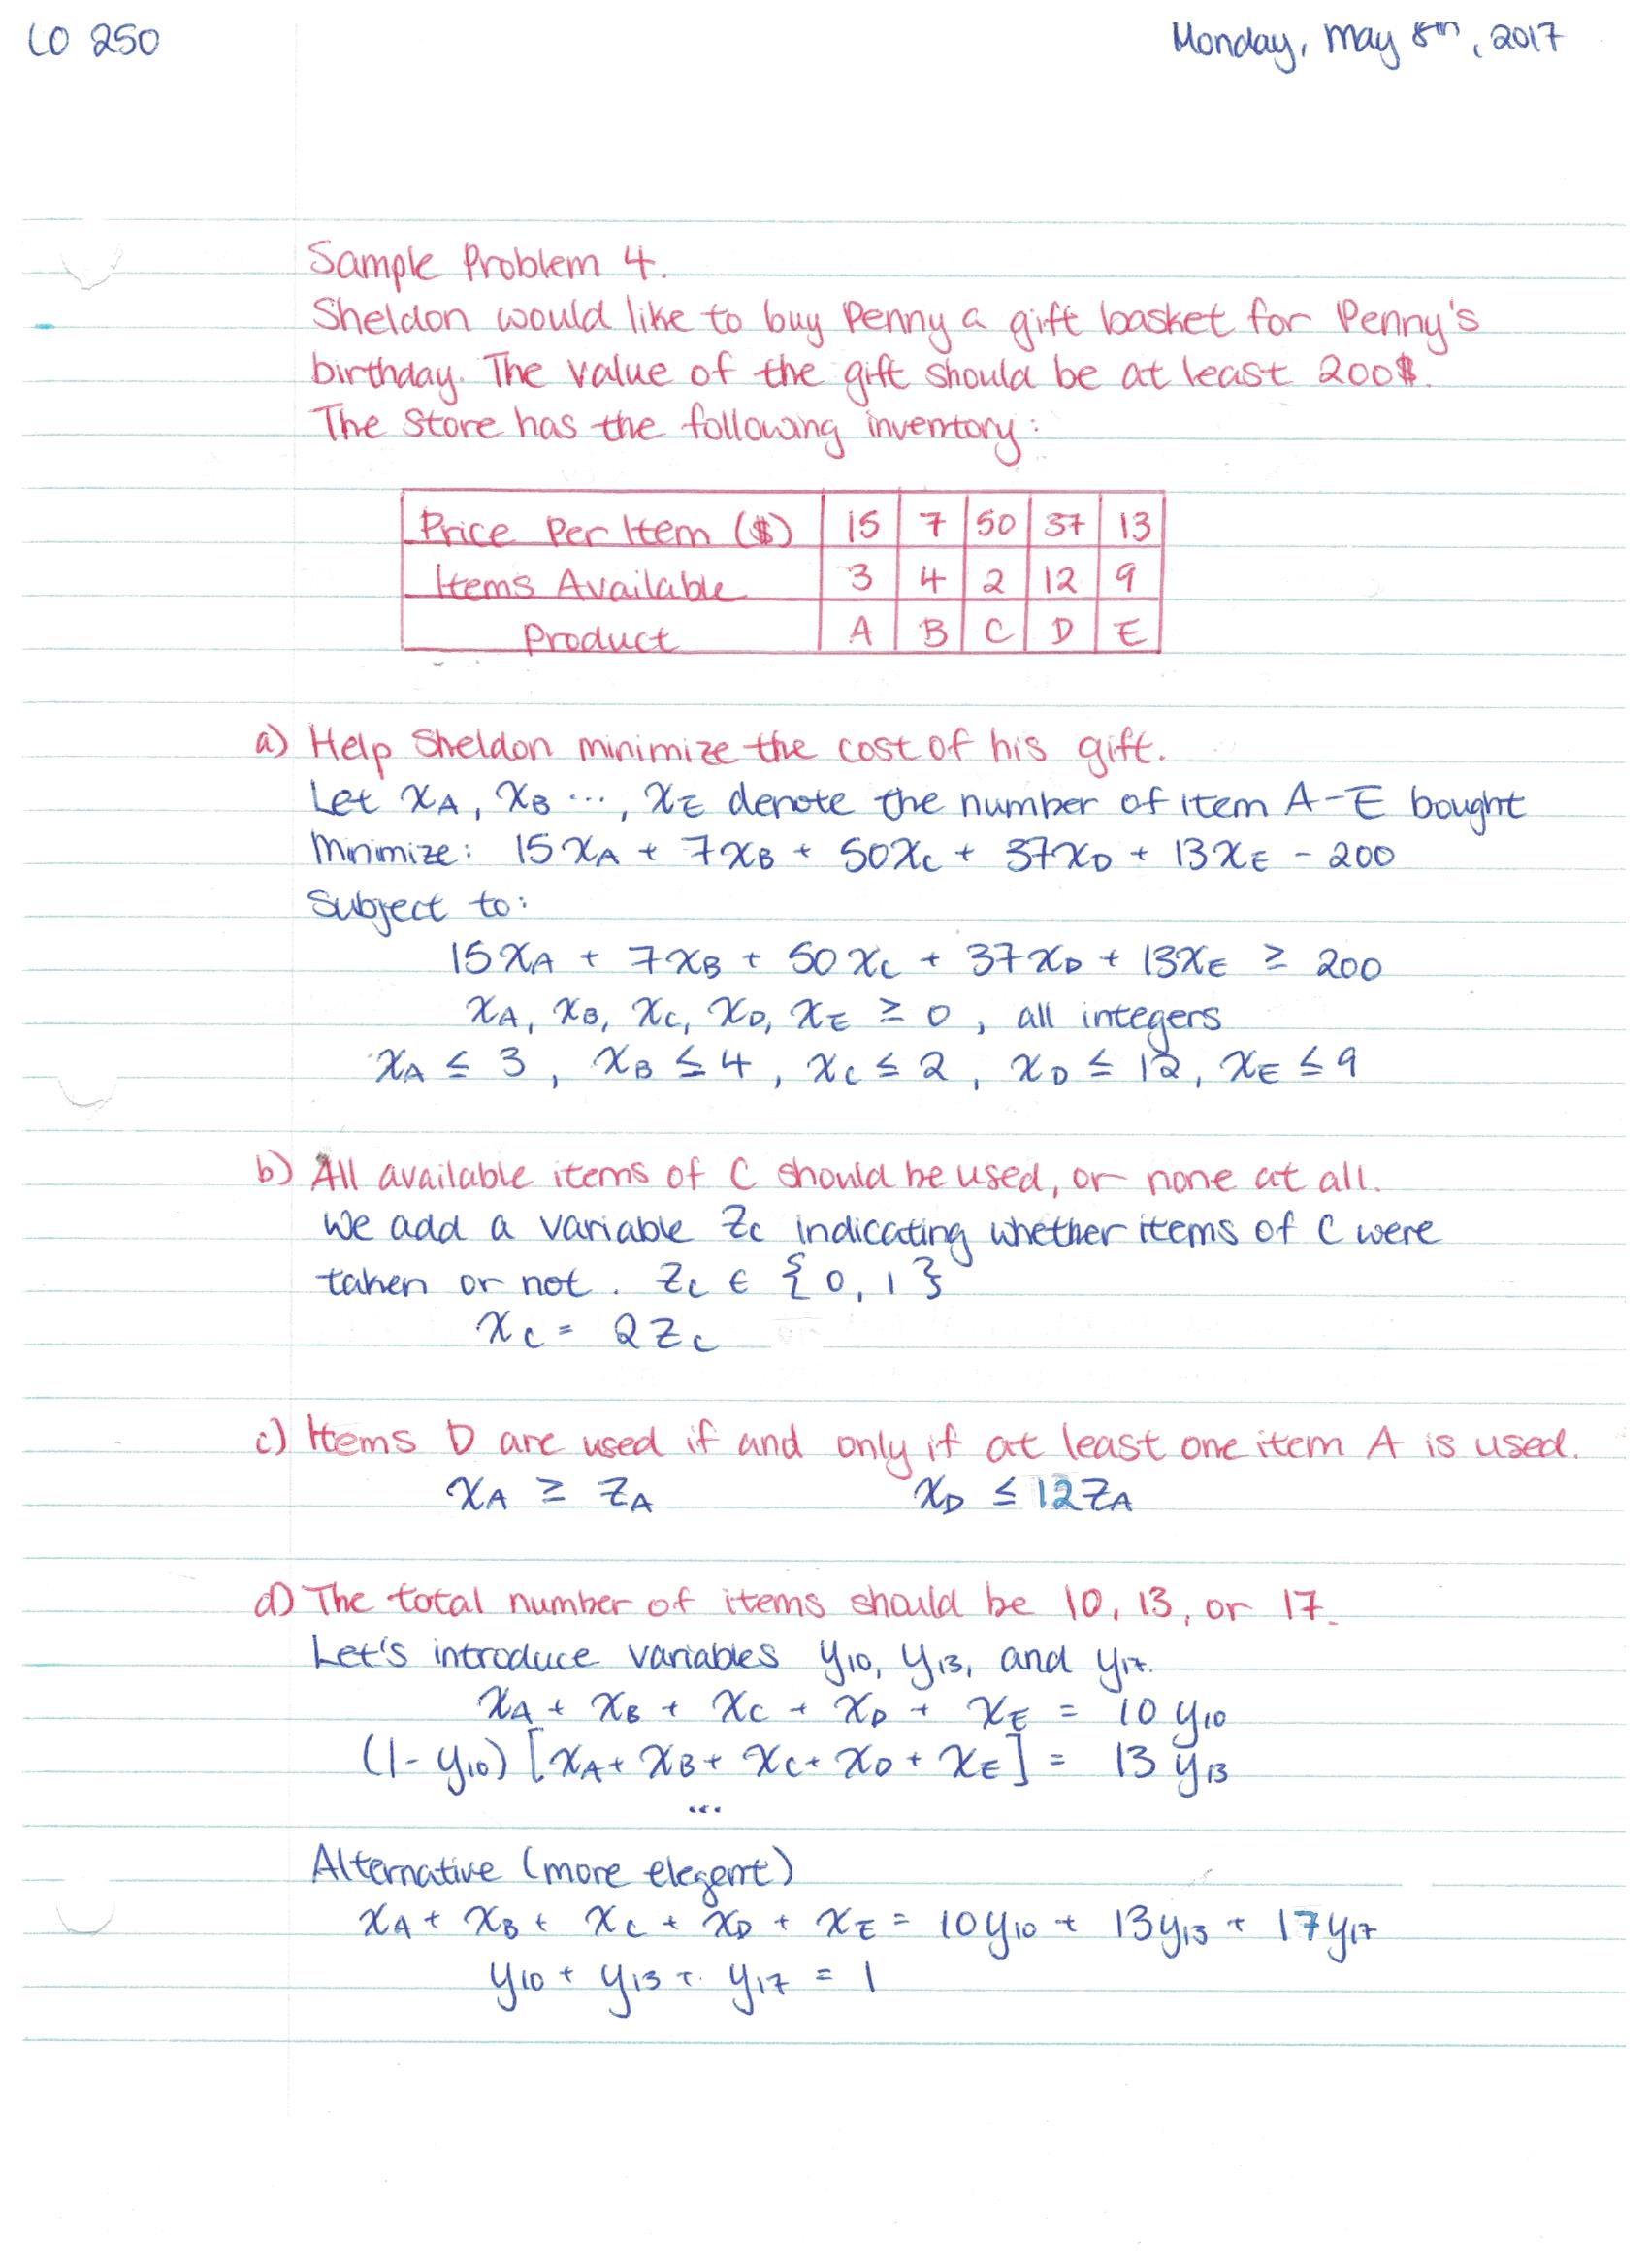 CO 250
Monday, May 8th, 2017
Sample Problem 4.
Sheldon would like to buy Penny a gift basket for Penny's
birthday. The value of the gift should be at least 200$.
The store has the following inventory:
Price Per Item ($) 15 7 50 37 13
Items Available 3 4 2 12 9
Product A B C D E
a) Help Sheldon minimize the cost of his gift.
Let x_A, x_B ..., x_E denote the number of item A-E bought
Minimize: 15x_A + 7x_B + 50x_C + 37x_D + 13x_E - 200
Subject to:
15x_A + 7x_B + 50x_C + 37x_D + 13x_E ≥ 200
x_A, x_B, x_C, x_D, x_E ≥ 0, all integers
x_A ≤ 3, x_B ≤ 4, x_C ≤ 2, x_D ≤ 12, x_E ≤ 9
b) All available items of C should be used, or none at all.
We add a variable z_C indicating whether items of C were
taken or not. z_C ∈ {0, 1}
x_C = 2z_C
c) Items D are used if and only if at least one item A is used.
x_A ≥ z_A x_D ≤ 12z_A
d) The total number of items should be 10, 13, or 17.
Let's introduce variables y_10, y_13, and y_17.
x_A + x_B + x_C + x_D + x_E = 10 y_10
(1 - y_10) [x_A + x_B + x_C + x_D + x_E] = 13 y_13
...
Alternative (more elegent)
x_A + x_B + x_C + x_D + x_E = 10y_10 + 13y_13 + 17y_17
y_10 + y_13 + y_17 = 1